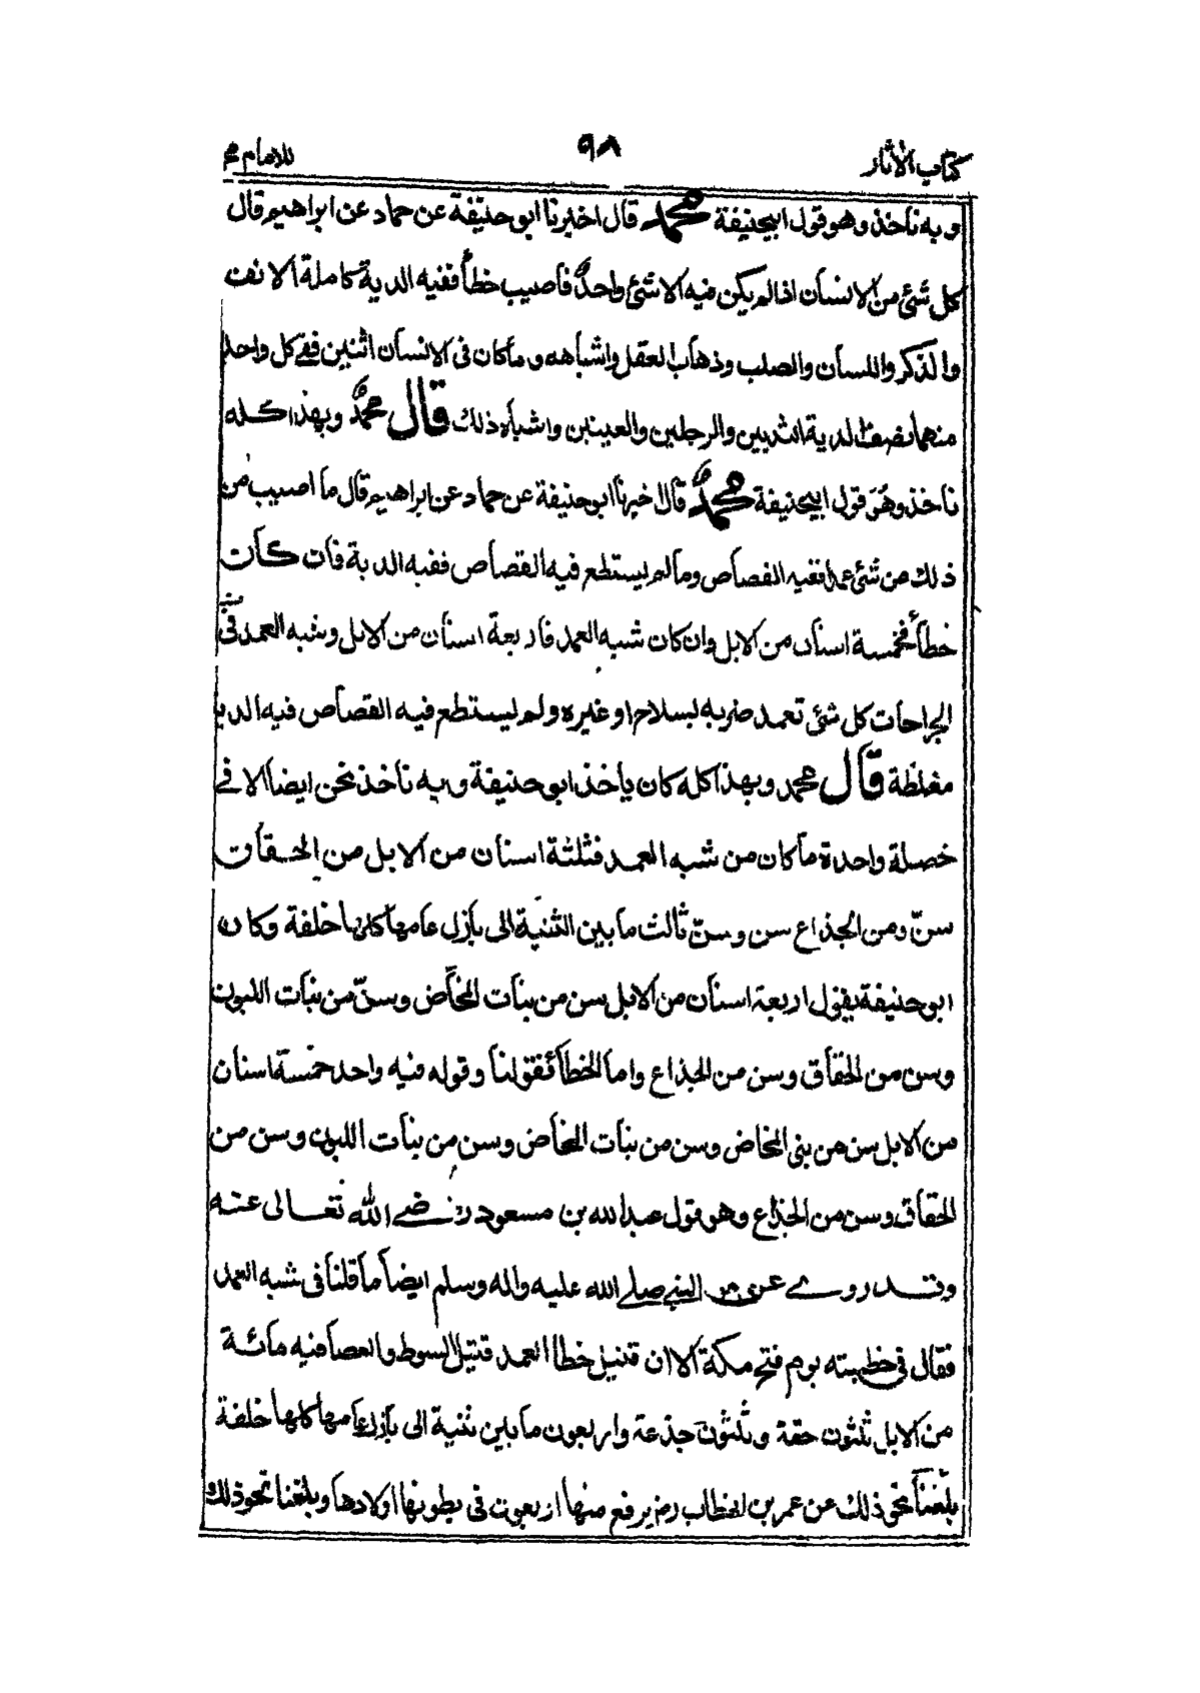 كتاب الآثار ٩٨ للامام محمد
وبه ناخذ وهو قول ابيحنيفة محمد قال اخبرنا ابو حنيفة عن حماد عن ابراهيم قال
كل شئ من الانسان اذا لم يكن فيه الا شئ واحدٌ فاصيب خطأً ففيه الدية كاملة الانف
والذكر واللسان والصلب وذهاب العقل واشباهه وما كان فى الانسان اثنين ففے كل واحد
منهما نصف الدية الثديين والرجلين والعينين واشباه ذلك قال محمدٌ وبهذا كله
ناخذ وهُوَ قول ابيحنيفة محمدٌ قال اخبرنا ابو حنيفة عن حماد عن ابراهيم قال ما اصيب من
ذلك من شئ عمدا ففيه القصاص وما لم يستطع فيه القصاص ففيه الدية فان كانت
خطأً فخمسة اسنان من الابل وان كان شبه العمد فاربعة اسنان من الابل وشبه العمد فى
الجراحات كل شئ تعمد ضربه بسلاح او غيره ولم يستطع فيه القصاص فيه الدية
مغلظة قال محمد وبهذا كله كان ياخذ ابو حنيفة وبه ناخذ نحن ايضا الا فے
خصلة واحدة ما كان من شبه العمد فثلثة اسنان من الابل من الحقات
سنّ ومن الجذاع سن وسنّ ثالث ما بين الثنية الى بازل عامها كلها خلفة وكان
ابو حنيفة يقول اربعة اسنان من الابل سن من بنات المخاض وسنّ من بنات اللبون
وسن من الحقاق وسن من الجذاع واما الخطأ فقولنا وقوله فيه واحد خمسة اسنان
من الابل سن من بنى المخاض وسن من بنات المخاض وسن من بنات اللبون وسن من
الحقاق وسن من الجذاع وهو قول عبد الله بن مسعود رضے الله تعالى عنه
وقد روے عن النبے صلے الله عليه واله وسلم ايضا ما قلنا فى شبه العمد
فقال فى خطبته يوم فتح مكة الا ان قتيل خطا العمد قتيل السوط والعصا فيه مائة
من الابل ثلثون حقة وثلثون جذعة واربعون ما بين ثنية الى بازل عامها كلها خلفة
بلغنا نحو ذلك عن عمر بن الخطاب رضـ يرفع منها اربعون فى بطونها اولادها وبلغنا نحو ذلك